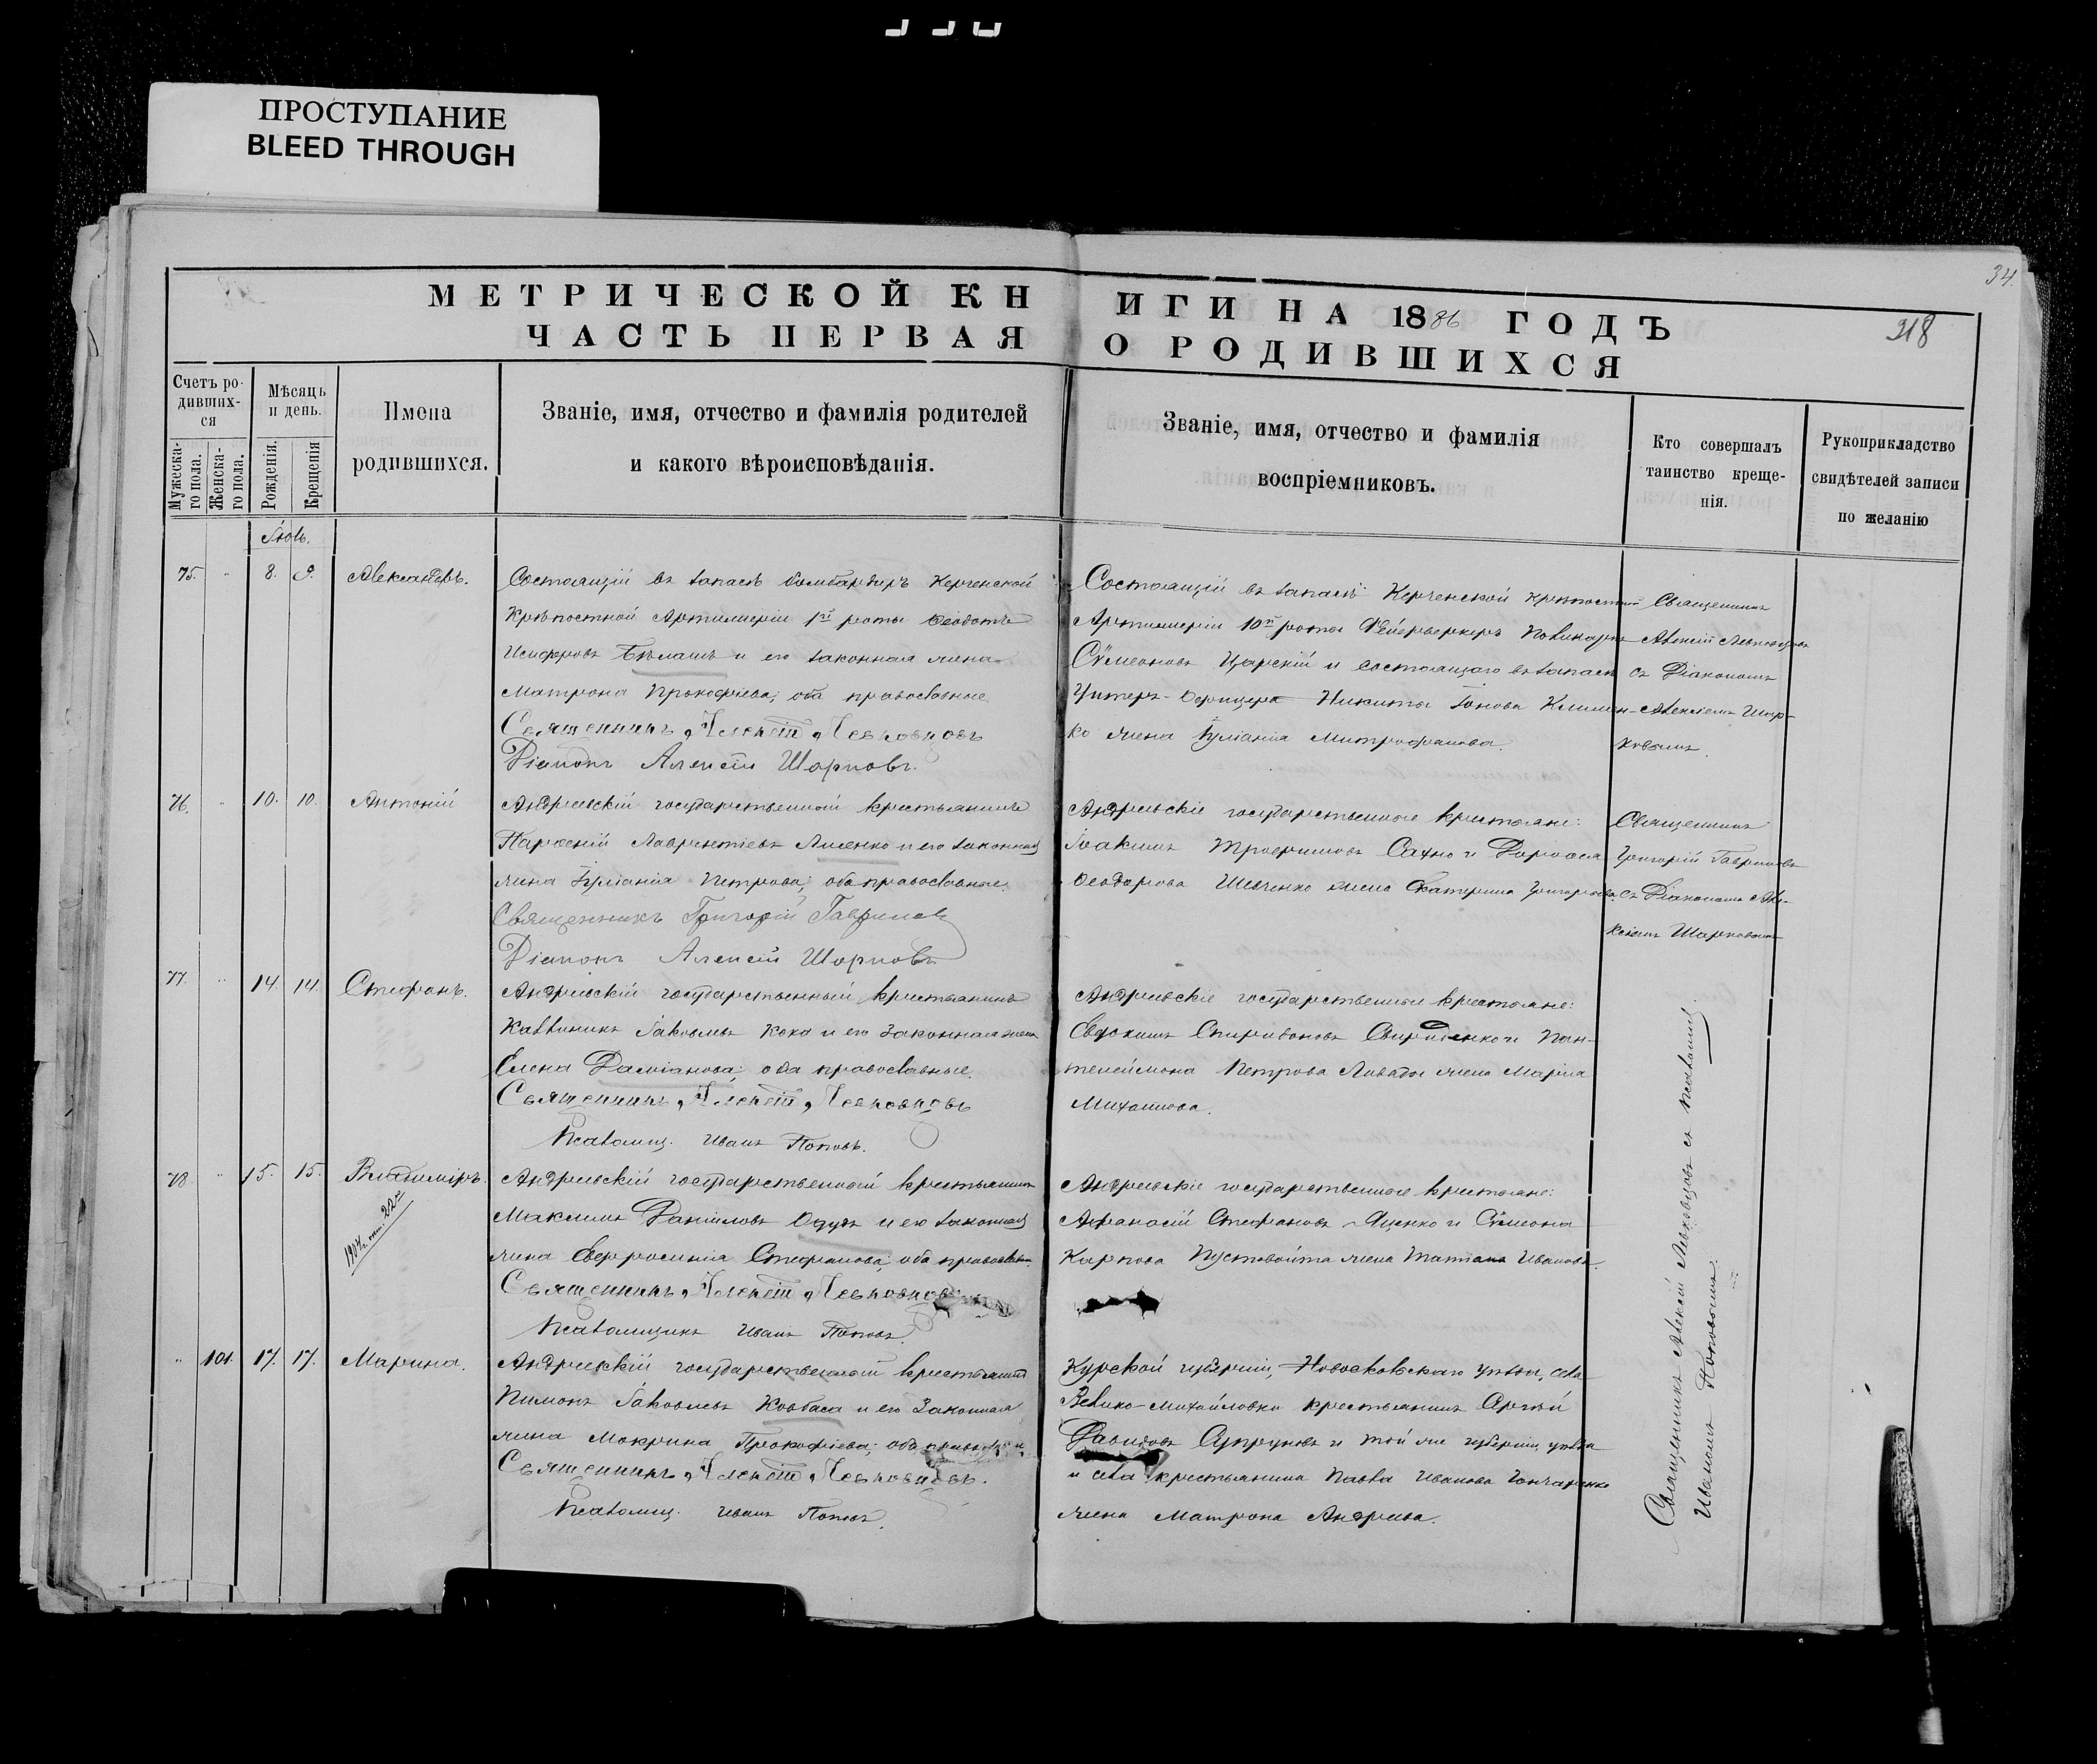 ПРОСТУПАНИЕ
BLEED THROUGH
34.
МЕТРИЧЕСКОЙ КНИГИ НА 1886 ГОДЪ
318
ЧАСТЬ ПЕРВАЯ О РОДИВШИХСЯ
Счетъ ро-
дивших-
ся
Мужеска-
го пола.
Женска-
го пола.
Мѣсяць
и день.
Рожденія.
Крещенія
Имена
родившихся.
Званіе, имя, отчество и фамилія родителей
и какого вѣроисповѣданія.
Званіе, имя, отчество и фамилія
воспріемниковъ.
Кто совершалъ
таинство креще-
нія.
Рукоприкладство
свидѣтелей записи
по желанію
75. 8. 9. Александръ.
Состоящій въ запасѣ бомбардиръ Керченской
Крѣпостной Артиллеріи 1й роты Ѳеодотъ
Бѣлашъ и его законная жена
Матрона Прокофіева, оба православные.
Священникъ Алексій Левковцовъ
Діаконъ Алексій Шорповъ.
Состоящій въ запасѣ Керченской крѣпостной
Артиллеріи 10й роты Фейерверкеръ
Сѵмеоновъ Царскій и состоящаго въ запасѣ
Унтеръ-Офицера Никиты Іонова Климен-
ко жена Іуліанія Митрофанова.
Священникъ
Алексій Левковцовъ
съ Діакономъ
76. 10. 10. Антоній
Андреевскій государственный крестьянинъ
Парѳеній Лаврентіевъ Лисенко и его законная
жена Іуліанія Петрова, оба православные.
Священникъ Григорій Гавриловъ
Діаконъ Алексій Шорповъ
Андреевскіе государственные крестьяне:
Іоакимъ Трофимовъ Сахно и Дороѳея
Ѳеодорова Шевченко жена Екатерина Григорьева.
Священникъ
Григорій Гавриловъ
съ Діакономъ Але-
77. 14. 14. Стефанъ.
Андреевскій государственный крестьянинъ
Каллиникъ Іаковлевъ Коха и его законная жена
Елена Даміанова, оба православные.
Священникъ Алексій Левковцовъ
Псаломщ. Иванъ Поповъ.
Андреевскіе государственные крестьяне:
Евдокимъ Спиридоновъ Свириденко и Пан-
телеймона Петрова жена Марія
Михайлова.
78. 15. 15. Владиміръ.
Андреевскій государственный крестьянинъ
Максимъ Даніиловъ Одудъ и его законная
жена Евфросинія Стефанова, оба православн.
Священникъ Алексій Левковцовъ
Псаломщикъ Иванъ Поповъ.
Андреевскіе государственные крестьяне:
Аѳанасій Стефановъ Яценко и Сѵмеона
Карпова Пустовойта жена Татіана Иванова.
101. 17. 17. Марина.
Андреевскій государственный крестьянинъ
Пименъ Іаковлевъ Ковбаса и его законная
жена Макрина Прокофіева, оба
Священникъ Алексій Левковцовъ.
Псаломщ. Иванъ Поповъ.
Курской губерніи, Новооскольскаго уѣзда, села
Велико-Михайловки крестьянинъ Сергѣй
Давидовъ Супруновъ и той же губерніи, уѣзда
и села крестьянина Павла Иванова Гончаренко
жена Матрона Андреева.
Священникъ Алексій Левковцовъ съ псаломщ.
Иваномъ Поповымъ.